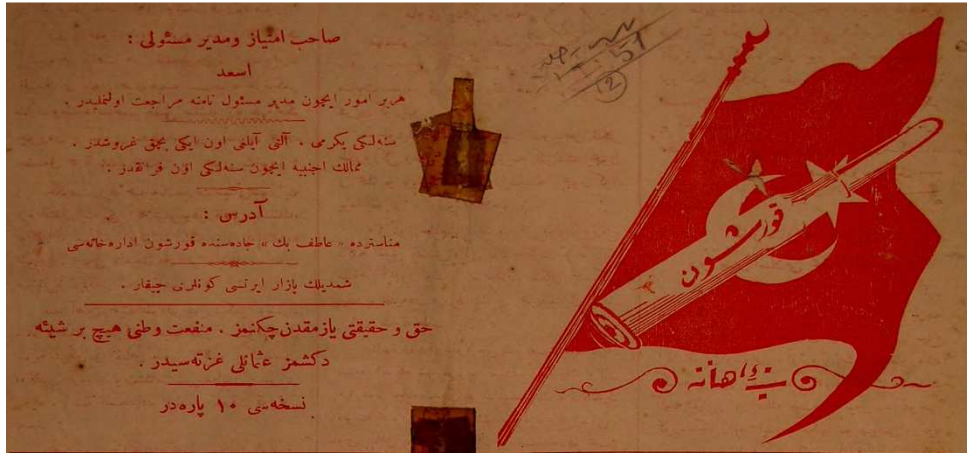 صاحب امتیاز ومدیر مسئولی :
اسعد
هربر امور ایچون مدیر مسئول نامنه مراجعت اولنملیدر .
سنه‌لکی یکرمی ، آلتی آیلغی اون ایکی بچق غروشدر .
ممالك اجنبیه ایچون سنه‌لکی اون فرانقدر .
آدرس :
مناسترده « عاطف بك » جاده‌سنده قورشون اداره‌خانه‌سی
شمدیلك پازار ایرتسی کونلری چیقار .
حق و حقیقتی یازمقدن چکنمز . منفعت وطنی هیچ بر شیئه
دکشمز عثمانلی غزته‌سیدر .
نسخه‌سی ۱۰ پاره‌در
51
2
قورشون